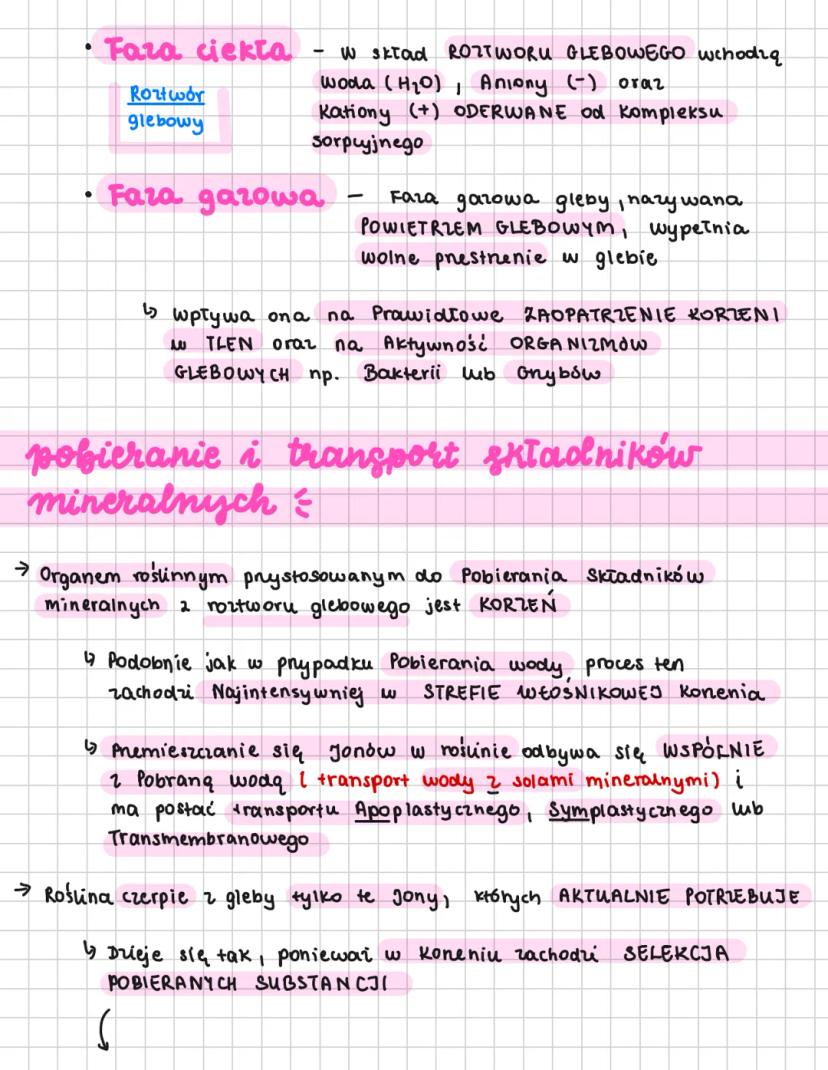 • Faza ciekła – w skład ROZTWORU GLEBOWEGO wchodzą
woda (H₂O), Aniony (-) oraz
Roztwór
glebowy
Kationy (+) ODERWANE od Kompleksu
sorpcyjnego
• Faza gazowa – Faza gazowa gleby, nazywana
POWIETRZEM GLEBOWYM, wypełnia
wolne przestrzenie w glebie
↳ wpływa ona na Prawidłowe ZAOPATRZENIE KORZENI
w TLEN oraz na Aktywność ORGANIZMÓW
GLEBOWYCH np. Bakterii lub Grzybów
pobieranie i transport składników
mineralnych
→ Organem roślinnym przystosowanym do Pobierania Składników
mineralnych z roztworu glebowego jest KORZEŃ
↳ Podobnie jak w przypadku Pobierania wody, proces ten
zachodzi Najintensywniej w STREFIE WŁOŚNIKOWEJ Korzenia
↳ Przemieszczanie się Jonów w roślinie odbywa się WSPÓLNIE
z Pobraną wodą (transport wody z solami mineralnymi) i
ma postać transportu Apoplastycznego, Symplastycznego lub
Transmembranowego
→ Roślina czerpie z gleby tylko te Jony, których AKTUALNIE POTRZEBUJE
↳ Dzieje się tak, ponieważ w Korzeniu zachodzi SELEKCJA
POBIERANYCH SUBSTANCJI